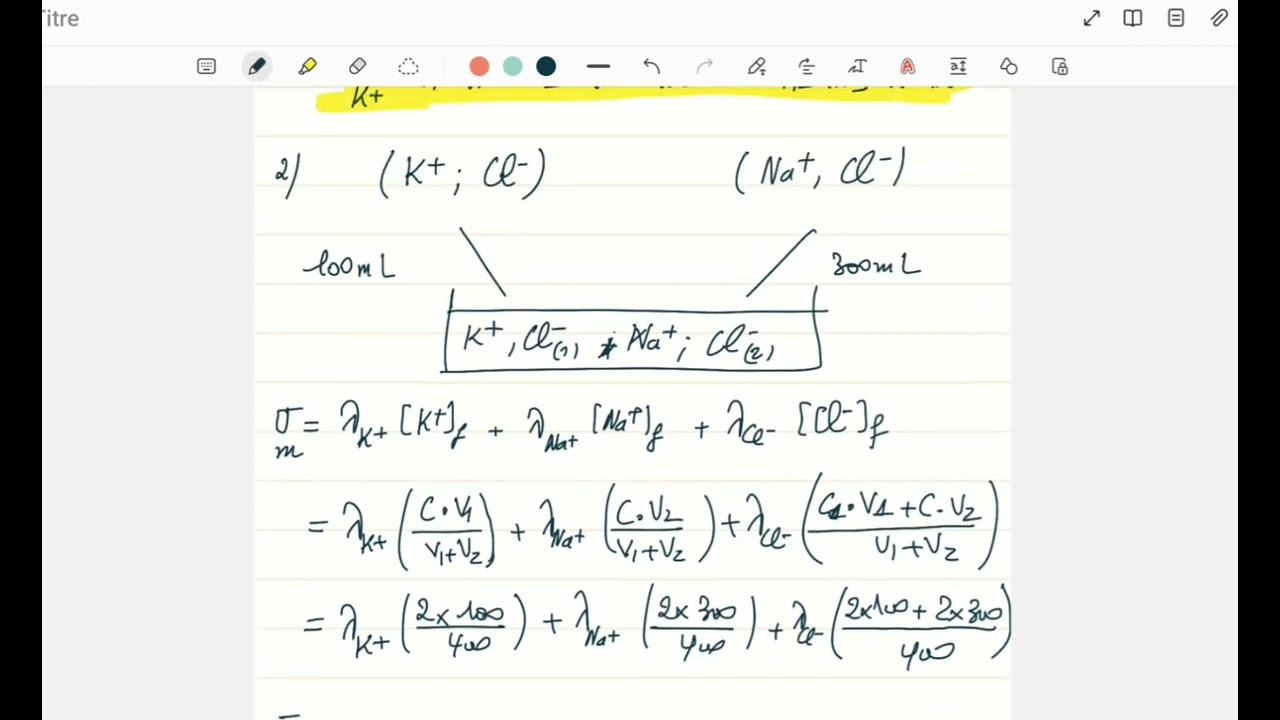 Titre
K+
2) (K+ ; Cl-) (Na+, Cl-)
100mL 300mL
K+, Cl-(1) Na+ ; Cl-(2)
σm = λK+ [K+]f + λNa+ [Na+]f + λCl- [Cl-]f
= λK+ (C·V1 / V1+V2) + λNa+ (C·V2 / V1+V2) + λCl- (C1·V1 + C·V2 / V1+V2)
= λK+ (2x100 / 400) + λNa+ (2x300 / 400) + λCl- (2x100 + 2x300 / 400)
=